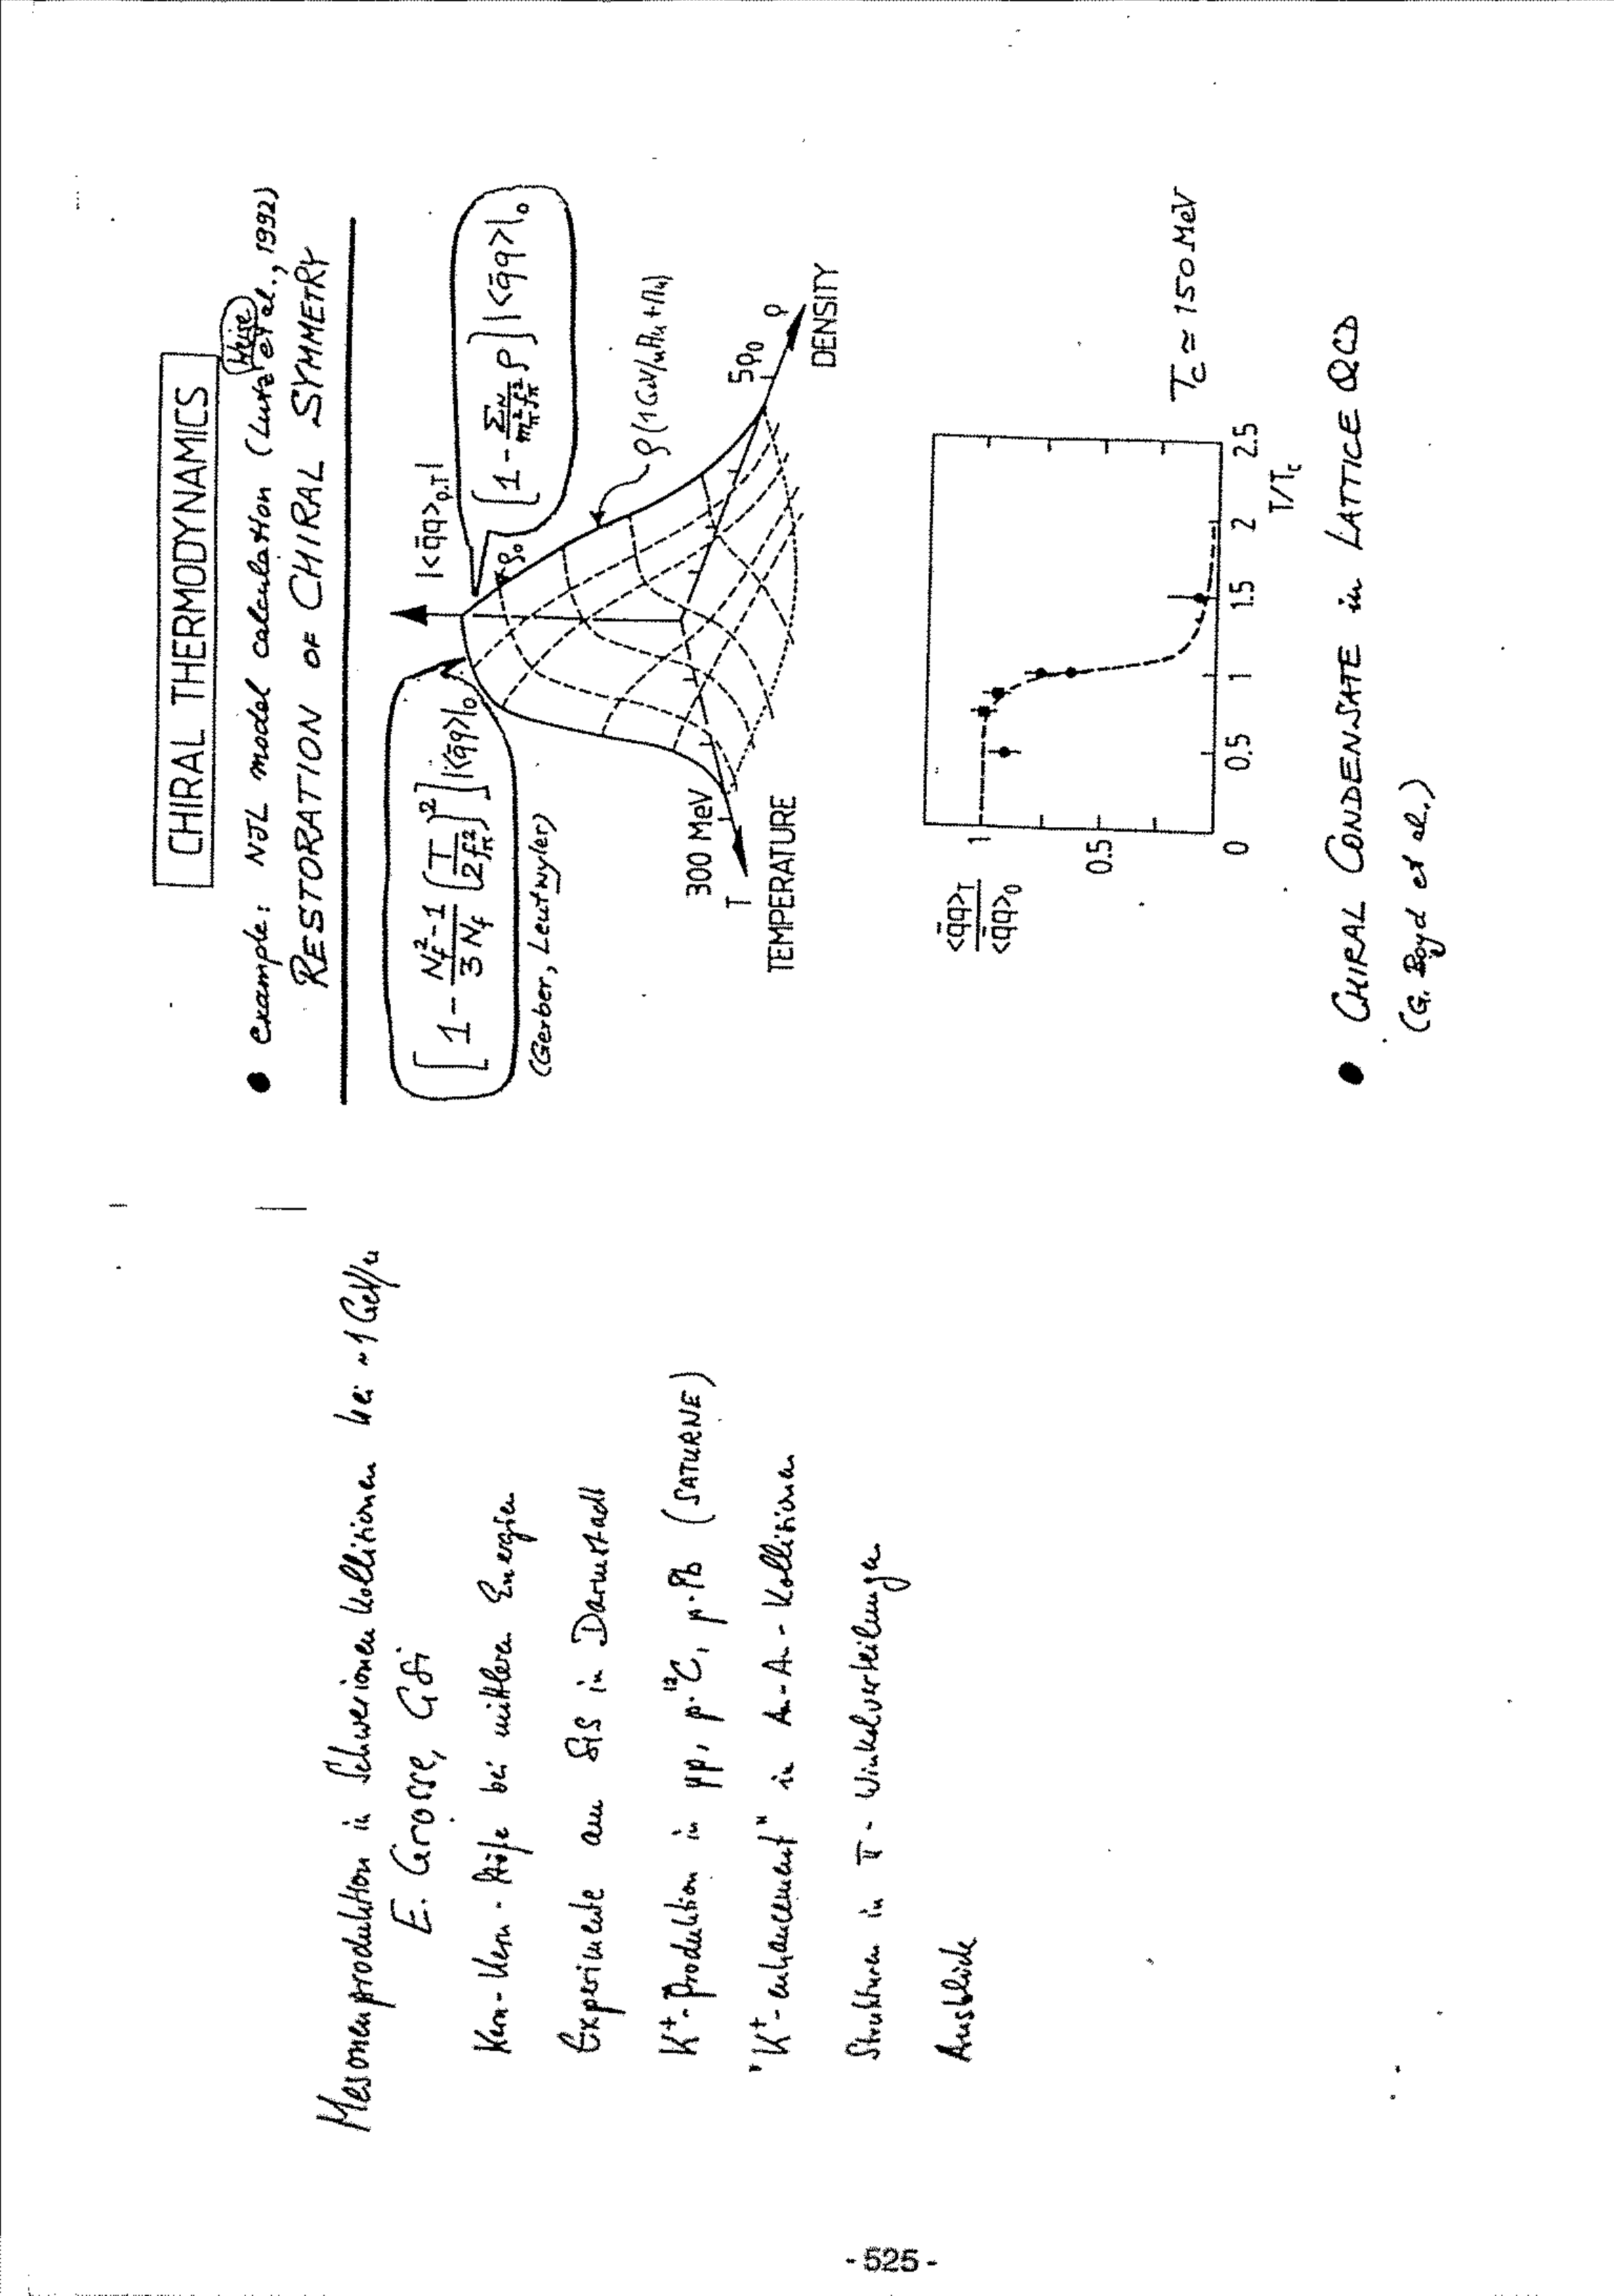 Mesonenproduktion in Schwerionenkollisionen bei ~1 GeV/u
E. Grosse, GSI
Kern-Kern-Stöße bei mittleren Energien
Experimente am SIS in Darmstadt
K⁺-Produktion in pp, p·¹²C, p·Pb (SATURNE)
"K⁺-enhancement" in Au-Au-Kollisionen
Strukturen in π-Winkelverteilungen
Ausblick
CHIRAL THERMODYNAMICS
Weise
• example: NJL model calculation (Lutz et al., 1992)
RESTORATION OF CHIRAL SYMMETRY
|<q̄q>ρ,T|
[1 - (N_f² - 1)/(3 N_f) (T/(2 f_π²))²] |<q̄q>|₀
(Gerber, Leutwyler)
[1 - Σ_N/(m_π² f_π²) ρ] |<q̄q>|₀
ρ₀
ρ(1 GeV/u Au + Au)
300 MeV
T
TEMPERATURE
5ρ₀
ρ
DENSITY
<q̄q>_T
<q̄q>₀
1
0.5
0
0.5
1
1.5
2
2.5
T/T_c
T_c ≃ 150 MeV
• CHIRAL CONDENSATE in LATTICE QCD
(G. Boyd et al.)
-525-